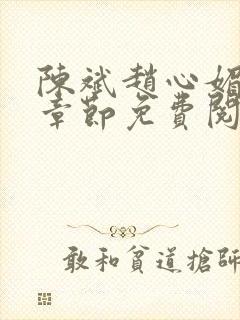 陳斌趙心媚
章節免費閱
敢和貧道搶師